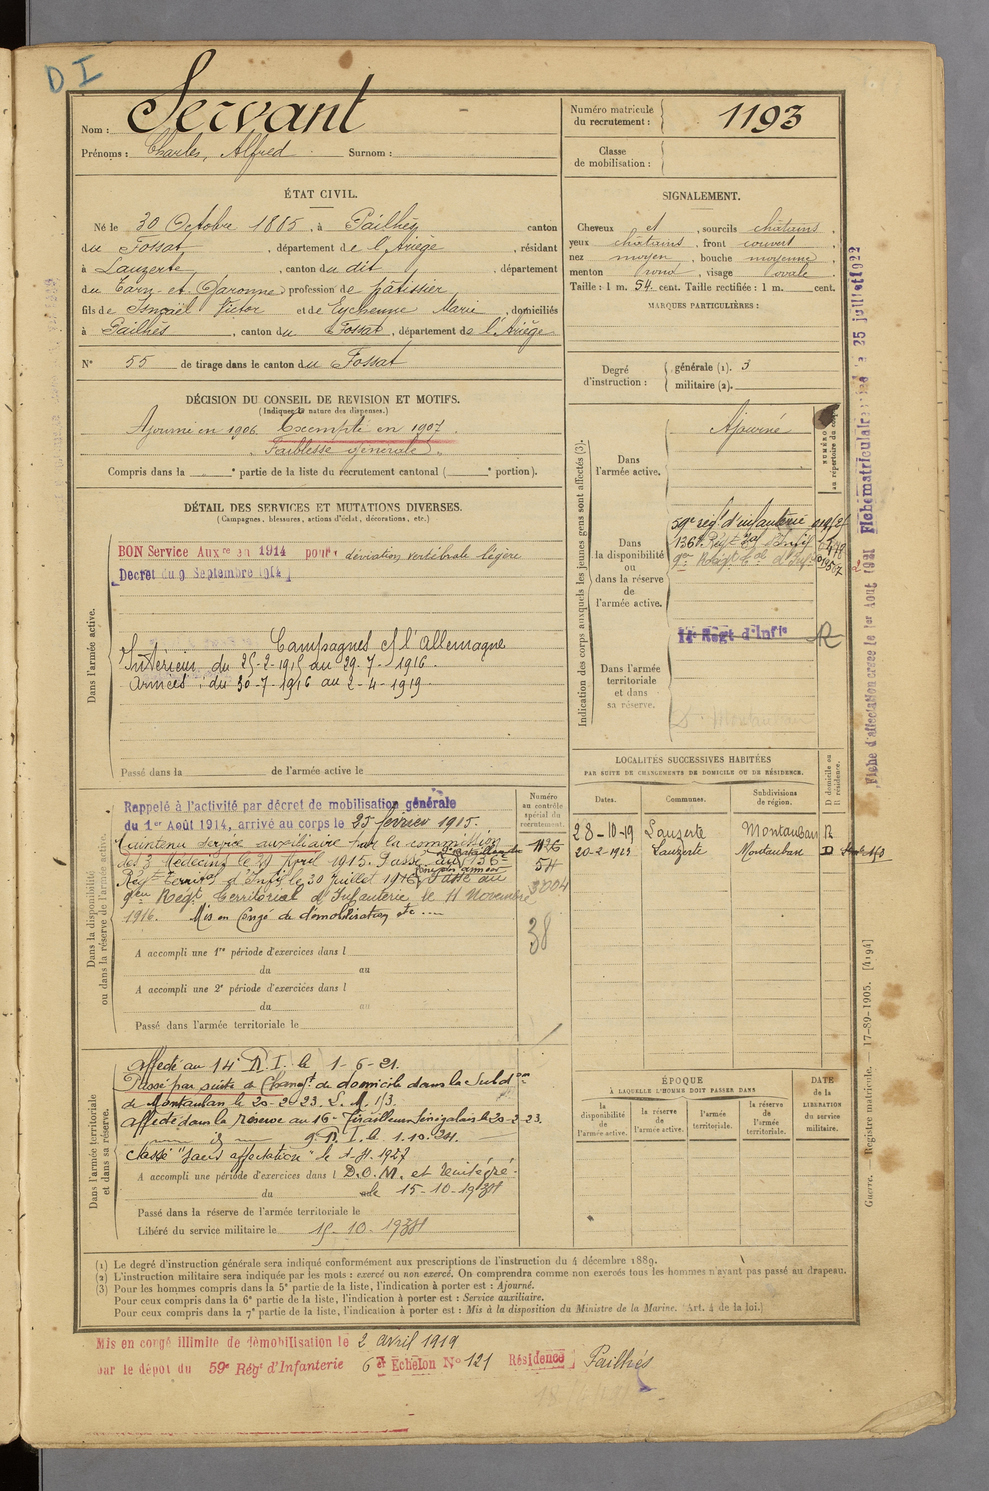 D I
Nom : Servant
Prénoms : Charles, Alfred Surnom :
Numéro matricule du recrutement : 1193
Classe de mobilisation :
ÉTAT CIVIL.
Né le 30 Octobre 1885, à Pailhès canton
du Fossat, département de l'Ariège, résidant
à Lauzerte, canton du dit, département
du Tarn-et-Garonne, profession de pâtissier
fils de Ismaël Victor et de Eychenne Marie, domiciliés
à Pailhès, canton du Fossat, département de l'Ariège
N° 55 de tirage dans le canton du Fossat
SIGNALEMENT.
Cheveux et, sourcils châtains,
yeux châtains, front couvert,
nez moyen, bouche moyenne,
menton rond, visage ovale.
Taille : 1 m. 54. cent. Taille rectifiée : 1 m. cent.
MARQUES PARTICULIÈRES :
Degré d'instruction : générale (1). 3
militaire (2).
DÉCISION DU CONSEIL DE REVISION ET MOTIFS.
(Indiquer la nature des dispenses.)
Ajourné en 1906. Exempté en 1907
"Faiblesse générale".
Compris dans la e partie de la liste du recrutement cantonal ( e portion).
DÉTAIL DES SERVICES ET MUTATIONS DIVERSES.
(Campagnes, blessures, actions d'éclat, décorations, etc.)
Dans l'armée active.
BON Service Auxre en 1914 pour déviation vertébrale légère
Décret du 9 Septembre 1914
Campagnes c/ l'Allemagne
Intérieur du 25-2-1915 au 29-7-1916.
Armées : du 30-7-1916 au 2-4-1919.
Passé dans la de l'armée active le
Indication des corps auxquels les jeunes gens sont affectés (3).
NUMÉRO au répertoire du corps
Dans l'armée active.
Ajourné
Dans la disponibilité ou dans la réserve de l'armée active.
59e régt d'infanterie
136e Régt Tal d'Infie
9e Régt Tal d'Infie
14e Régt d'Infie R
Dans l'armée territoriale et dans sa réserve.
D. Montauban
Dans la disponibilité ou dans la réserve de l'armée active.
Numéro au contrôle spécial du recrutement.
Rappelé à l'activité par décret de mobilisation générale
du 1er Août 1914, arrivé au corps le 25 février 1915.
Maintenu service auxiliaire par la commission
des 3 médecins le 29 April 1915. Passé au 136e
Régt Territal d'Infie le 30 Juillet 1916. Passé au
9eme Régt Territorial d'Infanterie le 11 Novembre
1916. Mis en Congé de démobilisation etc ....
54
3004
38
A accompli une 1re période d'exercices dans l
du au
A accompli une 2e période d'exercices dans l
du au
Passé dans l'armée territoriale le
LOCALITÉS SUCCESSIVES HABITÉES
PAR SUITE DE CHANGEMENTS DE DOMICILE OU DE RÉSIDENCE.
Dates. Communes. Subdivisions de région. D domicile ou R résidence.
28-10-19 Lauzerte Montauban R
20-2-1923 Lauzerte Montauban D
Dans l'armée territoriale et dans sa réserve.
Affecté au 14e R.I. le 1-6-21.
Passé par suite de Changt de domicile dans la Subdon
de Montauban le 20-2-23. L.M. 1/3.
Affecté dans la réserve au 16e Tirailleurs Sénégalais le 20-2-23.
Classé "Sans affectation" le 1-4-1927
A accompli une période d'exercices dans l D.O.M. et réintégré
du le 15-10-1934
Passé dans la réserve de l'armée territoriale le
Libéré du service militaire le 15-10-1934
ÉPOQUE
À LAQUELLE L'HOMME DOIT PASSER DANS
la disponibilité de l'armée active. la réserve de l'armée active. l'armée territoriale. la réserve de l'armée territoriale.
DATE de la LIBÉRATION du service militaire.
(1) Le degré d'instruction générale sera indiqué conformément aux prescriptions de l'instruction du 4 décembre 1889.
(2) L'instruction militaire sera indiquée par les mots : exercé ou non exercé. On comprendra comme non exercés tous les hommes n'ayant pas passé au drapeau.
(3) Pour les hommes compris dans la 5e partie de la liste, l'indication à porter est : Ajourné.
Pour ceux compris dans la 6e partie de la liste, l'indication à porter est : Service auxiliaire.
Pour ceux compris dans la 7e partie de la liste, l'indication à porter est : Mis à la disposition du Ministre de la Marine. (Art. 4 de la loi.)
Mis en congé illimité de démobilisation le 2 avril 1919
par le dépôt du 59e Régt d'Infanterie 6e Echelon N° 121 Résidence Pailhès
Fiche d'affectation créée le 1er Août 1921 Fiche matriculaire 25 juillet 1922
Guerre. — Registre matricule. — 17-89-1905. [4194]